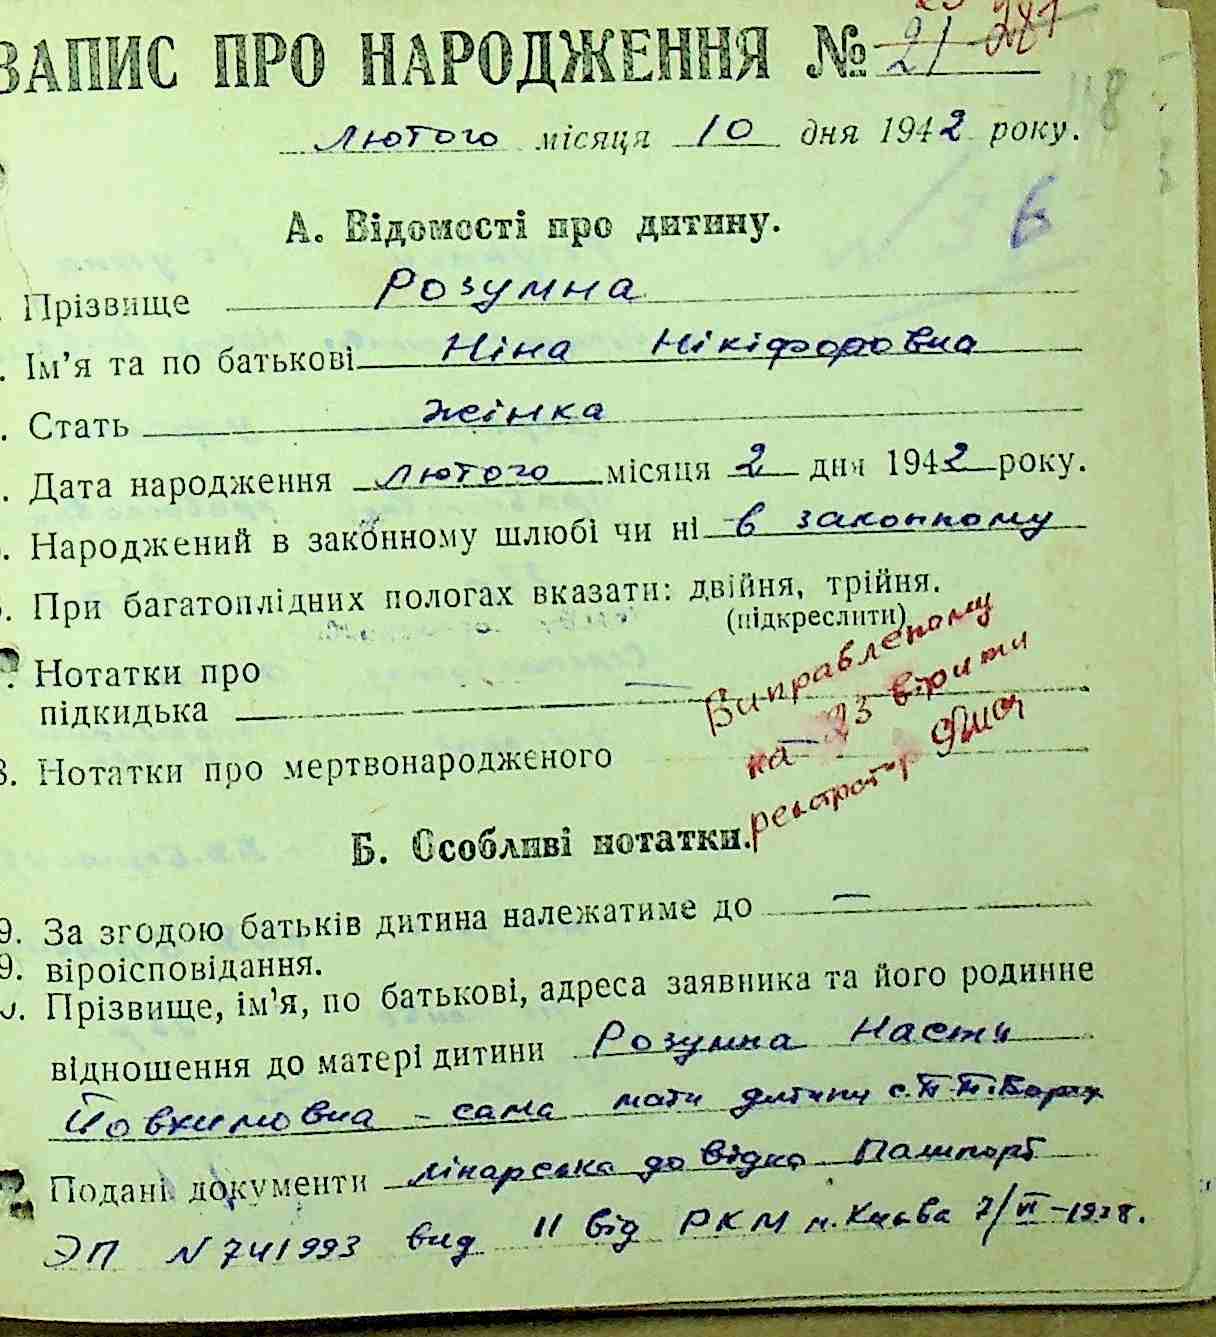 ЗАПИС ПРО НАРОДЖЕННЯ № 21 287
лютого місяця 10 дня 1942 року.
А. Відомості про дитину.
Прізвище Розумна
Ім'я та по батькові Ніна Нікіфоровна
Стать жінка
Дата народження лютого місяця 2 дня 1942 року.
Народжений в законному шлюбі чи ні в законному
При багатоплідних пологах вказати: двійня, трійня.
(підкреслити)
Нотатки про
підкидька —
8. Нотатки про мертвонародженого
Виправленому
на 23 вірити
реєстратор
Б. Особливі нотатки.
9. За згодою батьків дитина належатиме до —
9. віроісповідання.
Прізвище, ім'я, по батькові, адреса заявника та його родинне
відношення до матері дитини Розумна Настя
Йовхимовна - сама мати дитини с. П П. Борщ
Подані документи лікарська довідка Пашпорт
ЭП N 741993 вид 11 від РКМ м. Києва 7/VI-1938.